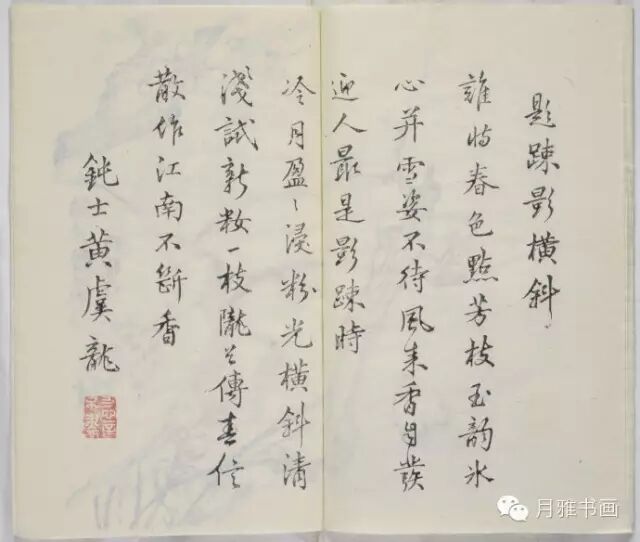 題疎影橫斜
誰將春色點芳枝玉韵氷
心并雪姿不待風来香自發
迎人最是影疎時
冷月盈〻浸粉光橫斜清
淺試新妝一枝隴上傳春信
散作江南不斷香
鈍士黃虞龍
月雅书画